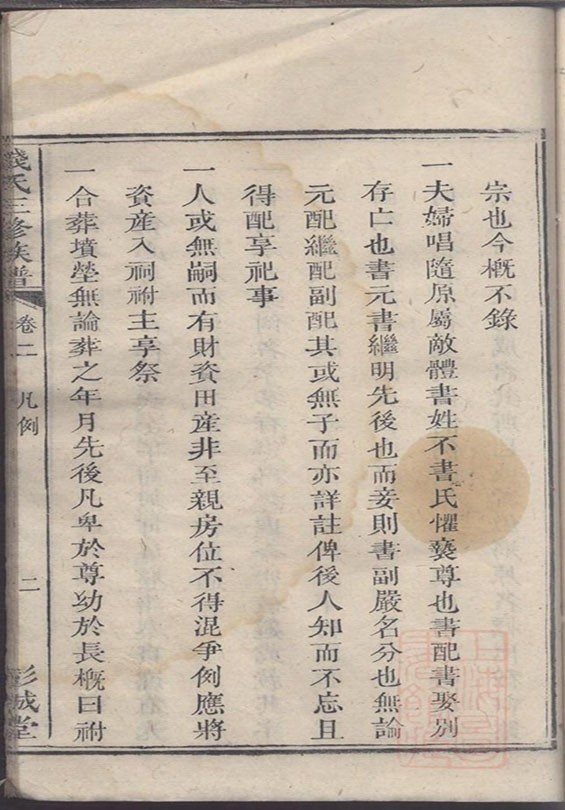 宗也今概不錄
一夫婦唱隨原屬敵體書姓不書氏懼褻尊也書配書娶別
存亡也書元書繼明先後也而妾則書副嚴名分也無論
元配繼配副配其或無子而亦詳註俾後人知而不忘且
得配享祀事
一人或無嗣而有財資田産非至親房位不得混爭例應將
資産入祠祔主享祭
一合葬墳塋無論葬之年月先後凡卑於尊幼於長概曰祔
錢氏三修族譜
卷二 凡例
二
彭城堂